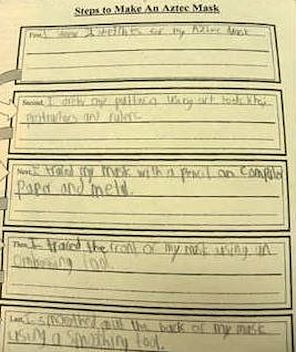 Steps to Make An Aztec Mask
First, I 2 sketches for my Aztec Mask
Second, I drew my pattern using art tools like
protractors and rulers.
Next, I traced my mask with a pencil on computer
paper and metal.
Then, I traced the front of my mask using an
embossing tool.
Last, I smoothed out the back of my mask
using a smoothing tool.